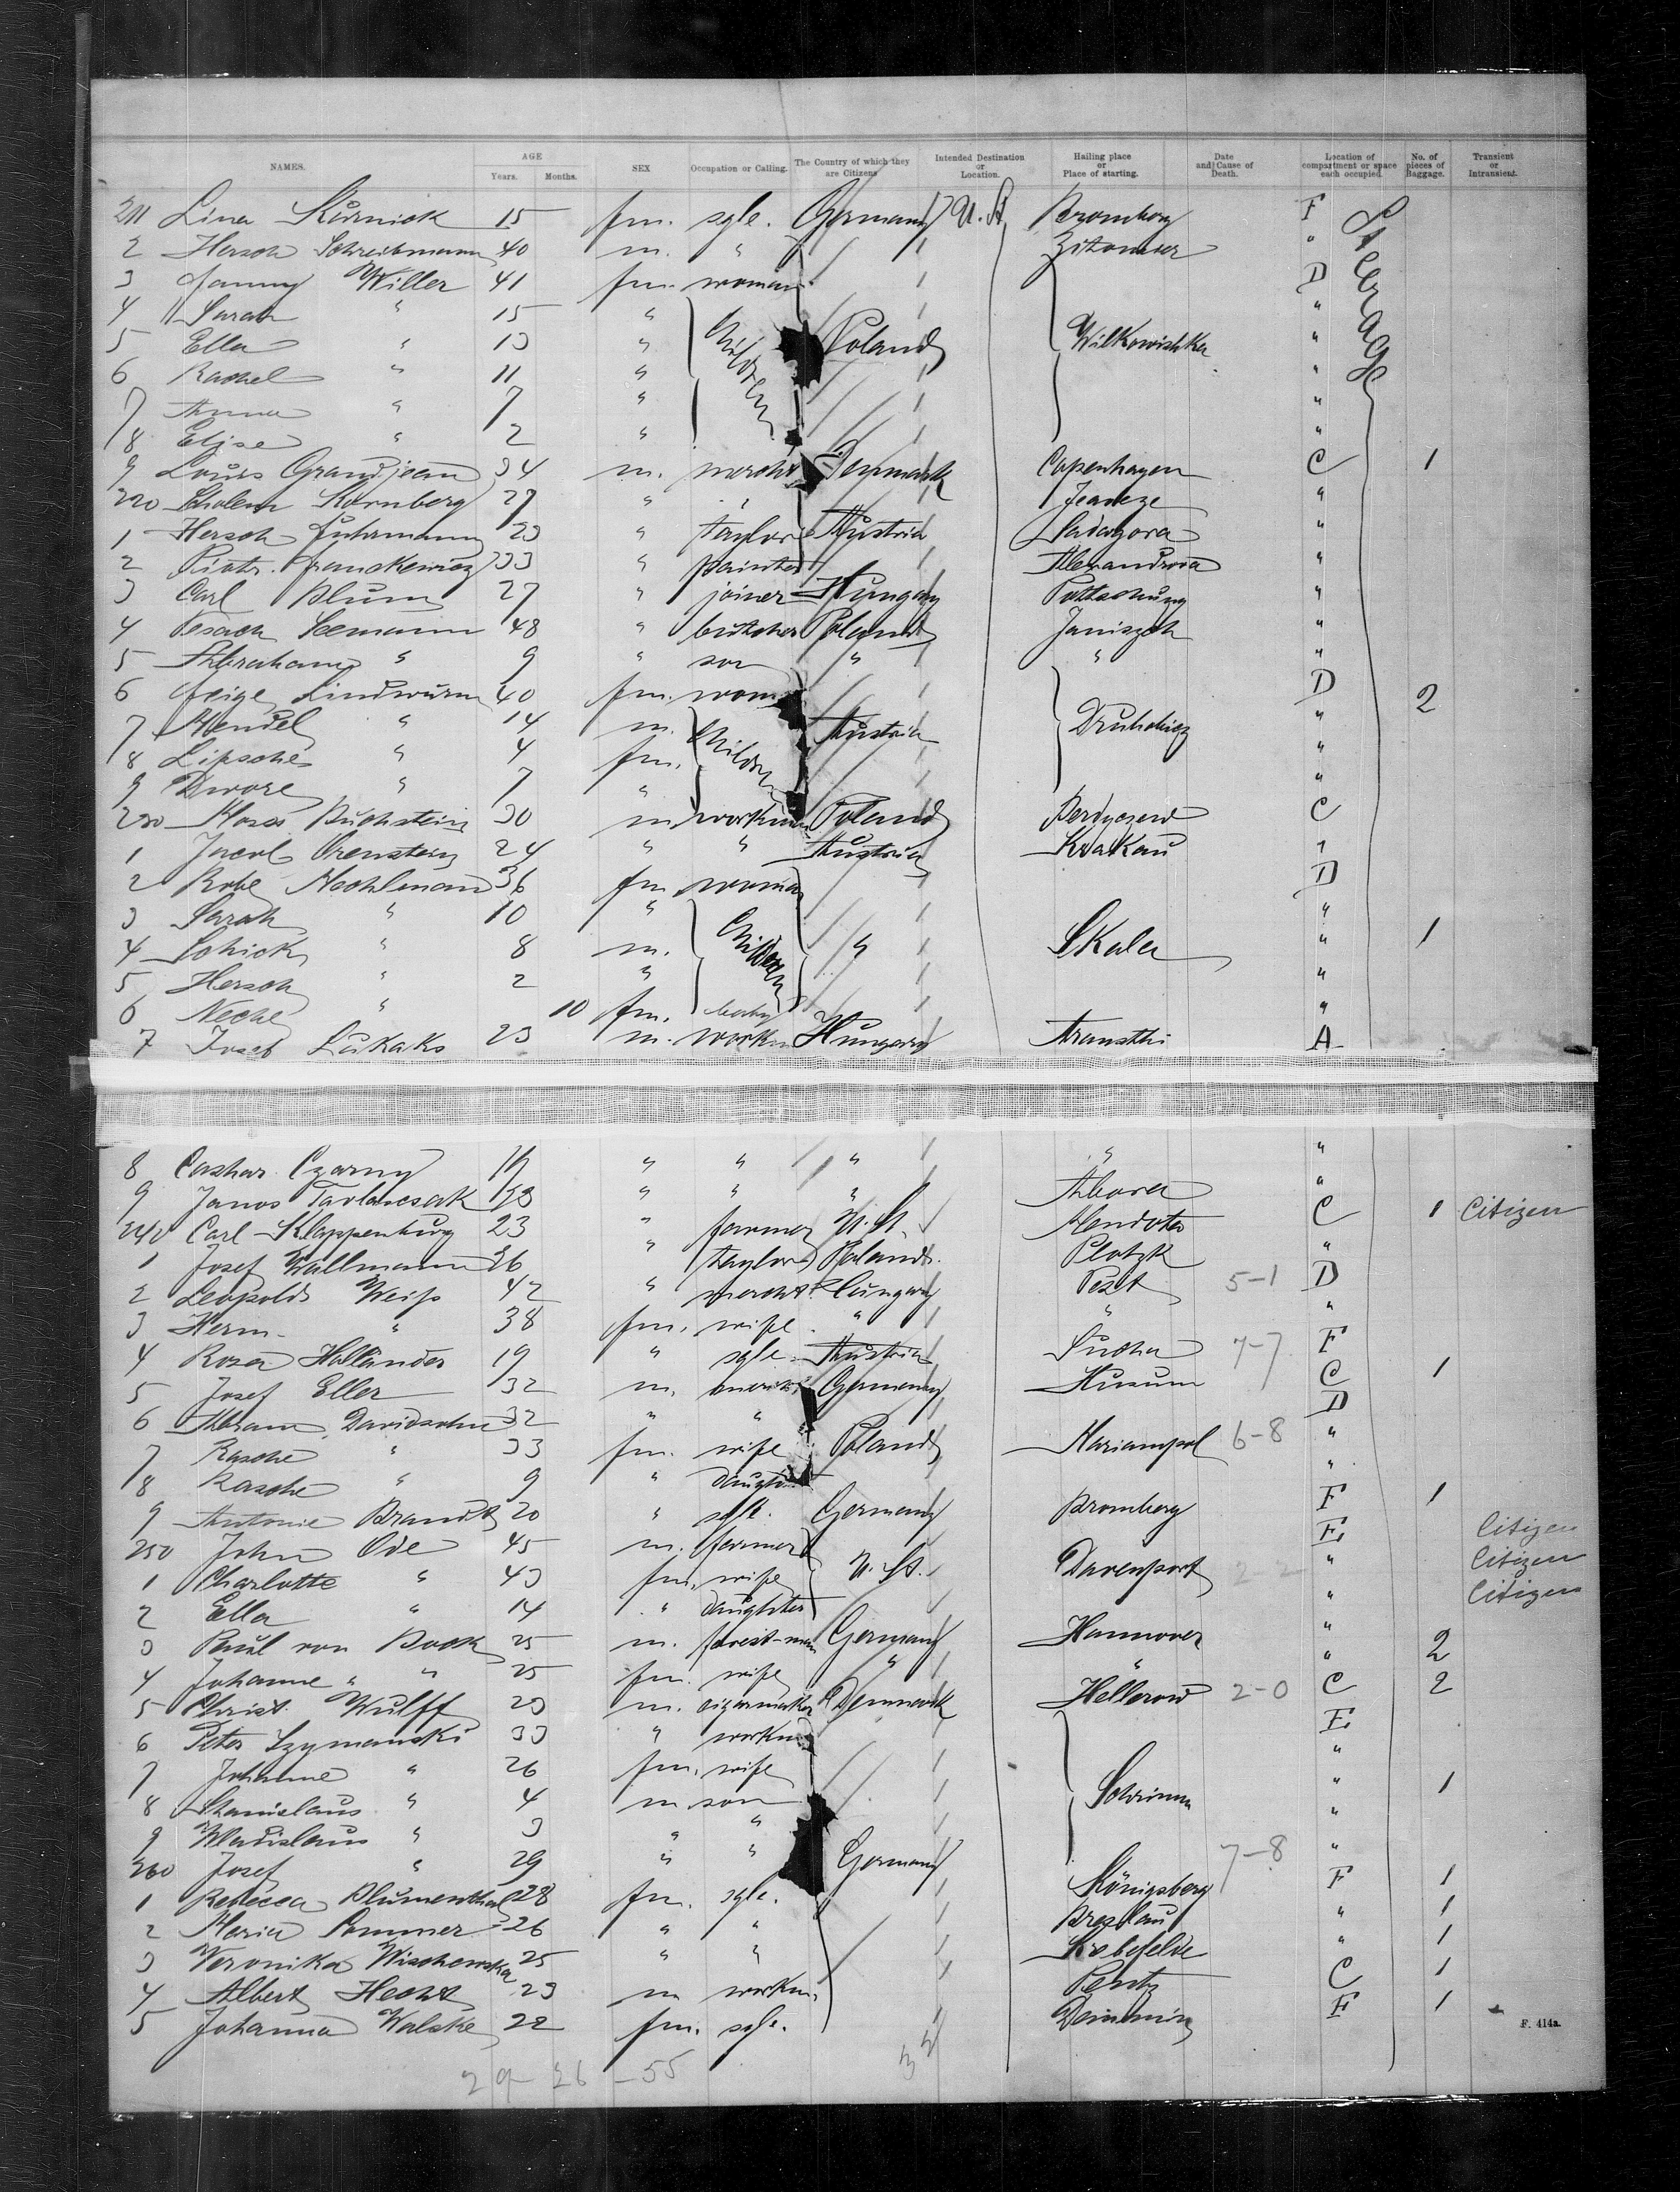 NAMES. AGE Years. Months. SEX Occupation or Calling. The Country of which they are Citizens Intended Destination or Location. Hailing place or Place of starting. Date and Cause of Death. Location of compartment or space each occupied. No. of pieces of Baggage. Transient or Intransient.
211 Lina Kürnick 15 fm. sgle. Germany U. St Bromberg F Steerage
2 Hersch Schreibmann 40 m. " Zitomier "
3 Fanny Willer 41 fm. woman D
4 Sarah " 15 " Children "
5 Ella " 13 " Poland Wilkowishka "
6 Rachel " 11 " "
7 Anna " 7 " "
8 Elise " 2 " "
9 Louis Grandjean 34 m. mercht Denmark Copenhagen C 1
220 Scholem Kornberg 27 " " "
1 Hersch Fuhrmann 23 " taylor Austria Sadagora "
2 Piotr. Franckewicz 33 " painter Alexandrova "
3 Carl Blum 27 " joiner Hungary "
4 Pesach Seemann 48 " butcher Poland Janiszek "
5 Abraham " 9 " son " " "
6 Feige Lindwurm 40 fm. woman D 2
7 Mendel " 14 m. Children Austria Druhobicz "
8 Lipsche " 4 fm. "
9 Dwore " 7 " "
230 Moses Buchstein 30 m workman Poland Berdyczew C
1 Jacob Orenstein 24 " " Austria Krakau "
2 Rohe Nachlmann 36 fm woman D
3 Sarah " 10 " Children "
4 Schick " 8 m. " Skala " 1
5 Hersch " 2 " "
6 Neche " 10 fm. baby "
7 Josef Lukaks 23 m. workm Hungary A
8 Czarny 19 " " " " "
9 Janos 33 " " " Abora "
240 Carl Klappenburg 23 " farmer U. St. Mendota C 1 Citizen
1 Josef Wallmann 26 " taylor Poland Plotzk "
2 Leopold Weiss 42 " mercht Hungary Pest 5-1 D
3 Herm. " 38 fm. wife " " "
4 Rosa Holländer 19 " sgle. Austria Sucha 7-7 F
5 Josef Eller 32 m. Germany Husum C 1
6 Abram Davidsohn 32 " " D
7 Rasche " 33 fm. wife Poland Mariampol 6-8 "
8 Rasche " 9 " daughter "
9 Antonie Brandt 20 " sgle. Germany Bromberg F 1
250 John Ode 45 m. farmer E Citizen
1 Charlotte " 43 fm. wife U. St. Davenport 2 2 " Citizen
2 Ella " 14 " daughter " Citizen
3 Paul von Bock 25 m. forest-man Germany Hannover " 2
4 Johanne " " 25 fm. wife " " "
5 Christ. Wulff 23 m. cigarmaker Denmark Hellerow 2-0 C 2
6 Peter Szymanski 33 " workm E
7 Johanne " 26 fm. wife "
8 Stanislaus " 4 m son Schrimm " 1
9 Wladislaus " 3 " " "
260 Josef " 29 " " Germany 7-8 "
1 Rebecca Blumenthal 28 fm. sgle. Königsberg F 1
2 Maria Sommer 26 " " Breslau " 1
3 Veronika Wischewska 25 " " " 1
4 Albert Hecht 23 m workm. Pentz C 1
5 Johanna Walske 22 fm. sgle. Demmin F 1
F. 414a.
29 26 - 55